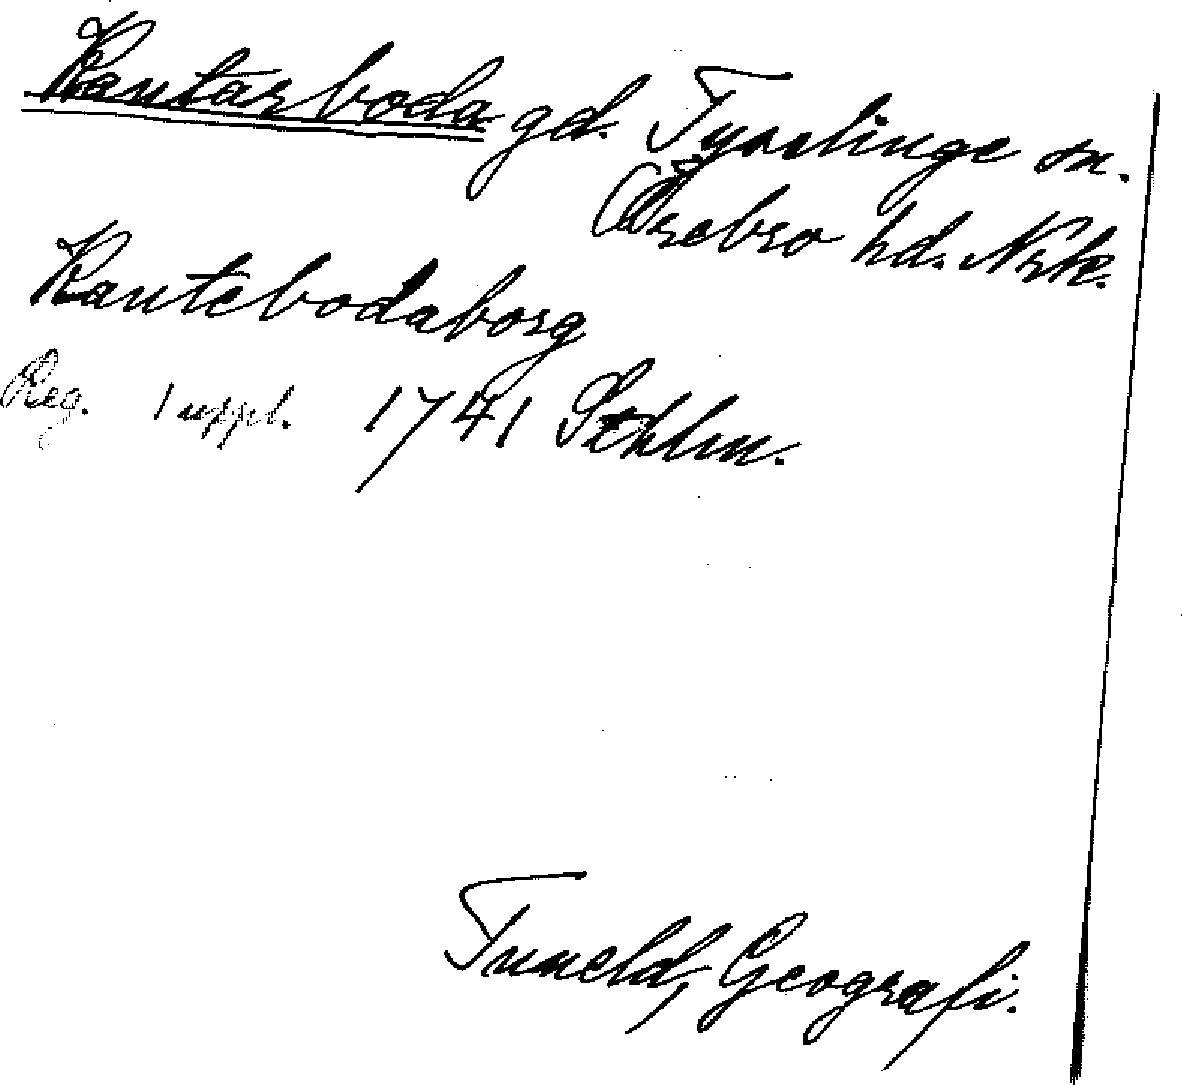 Rautarboda gd. Tysslinge sn.
Örebro hd. Nrk.
Rautebodaborg
Reg. 1 uppl. 1741 Sthlm.
Tuneld, Geografi.